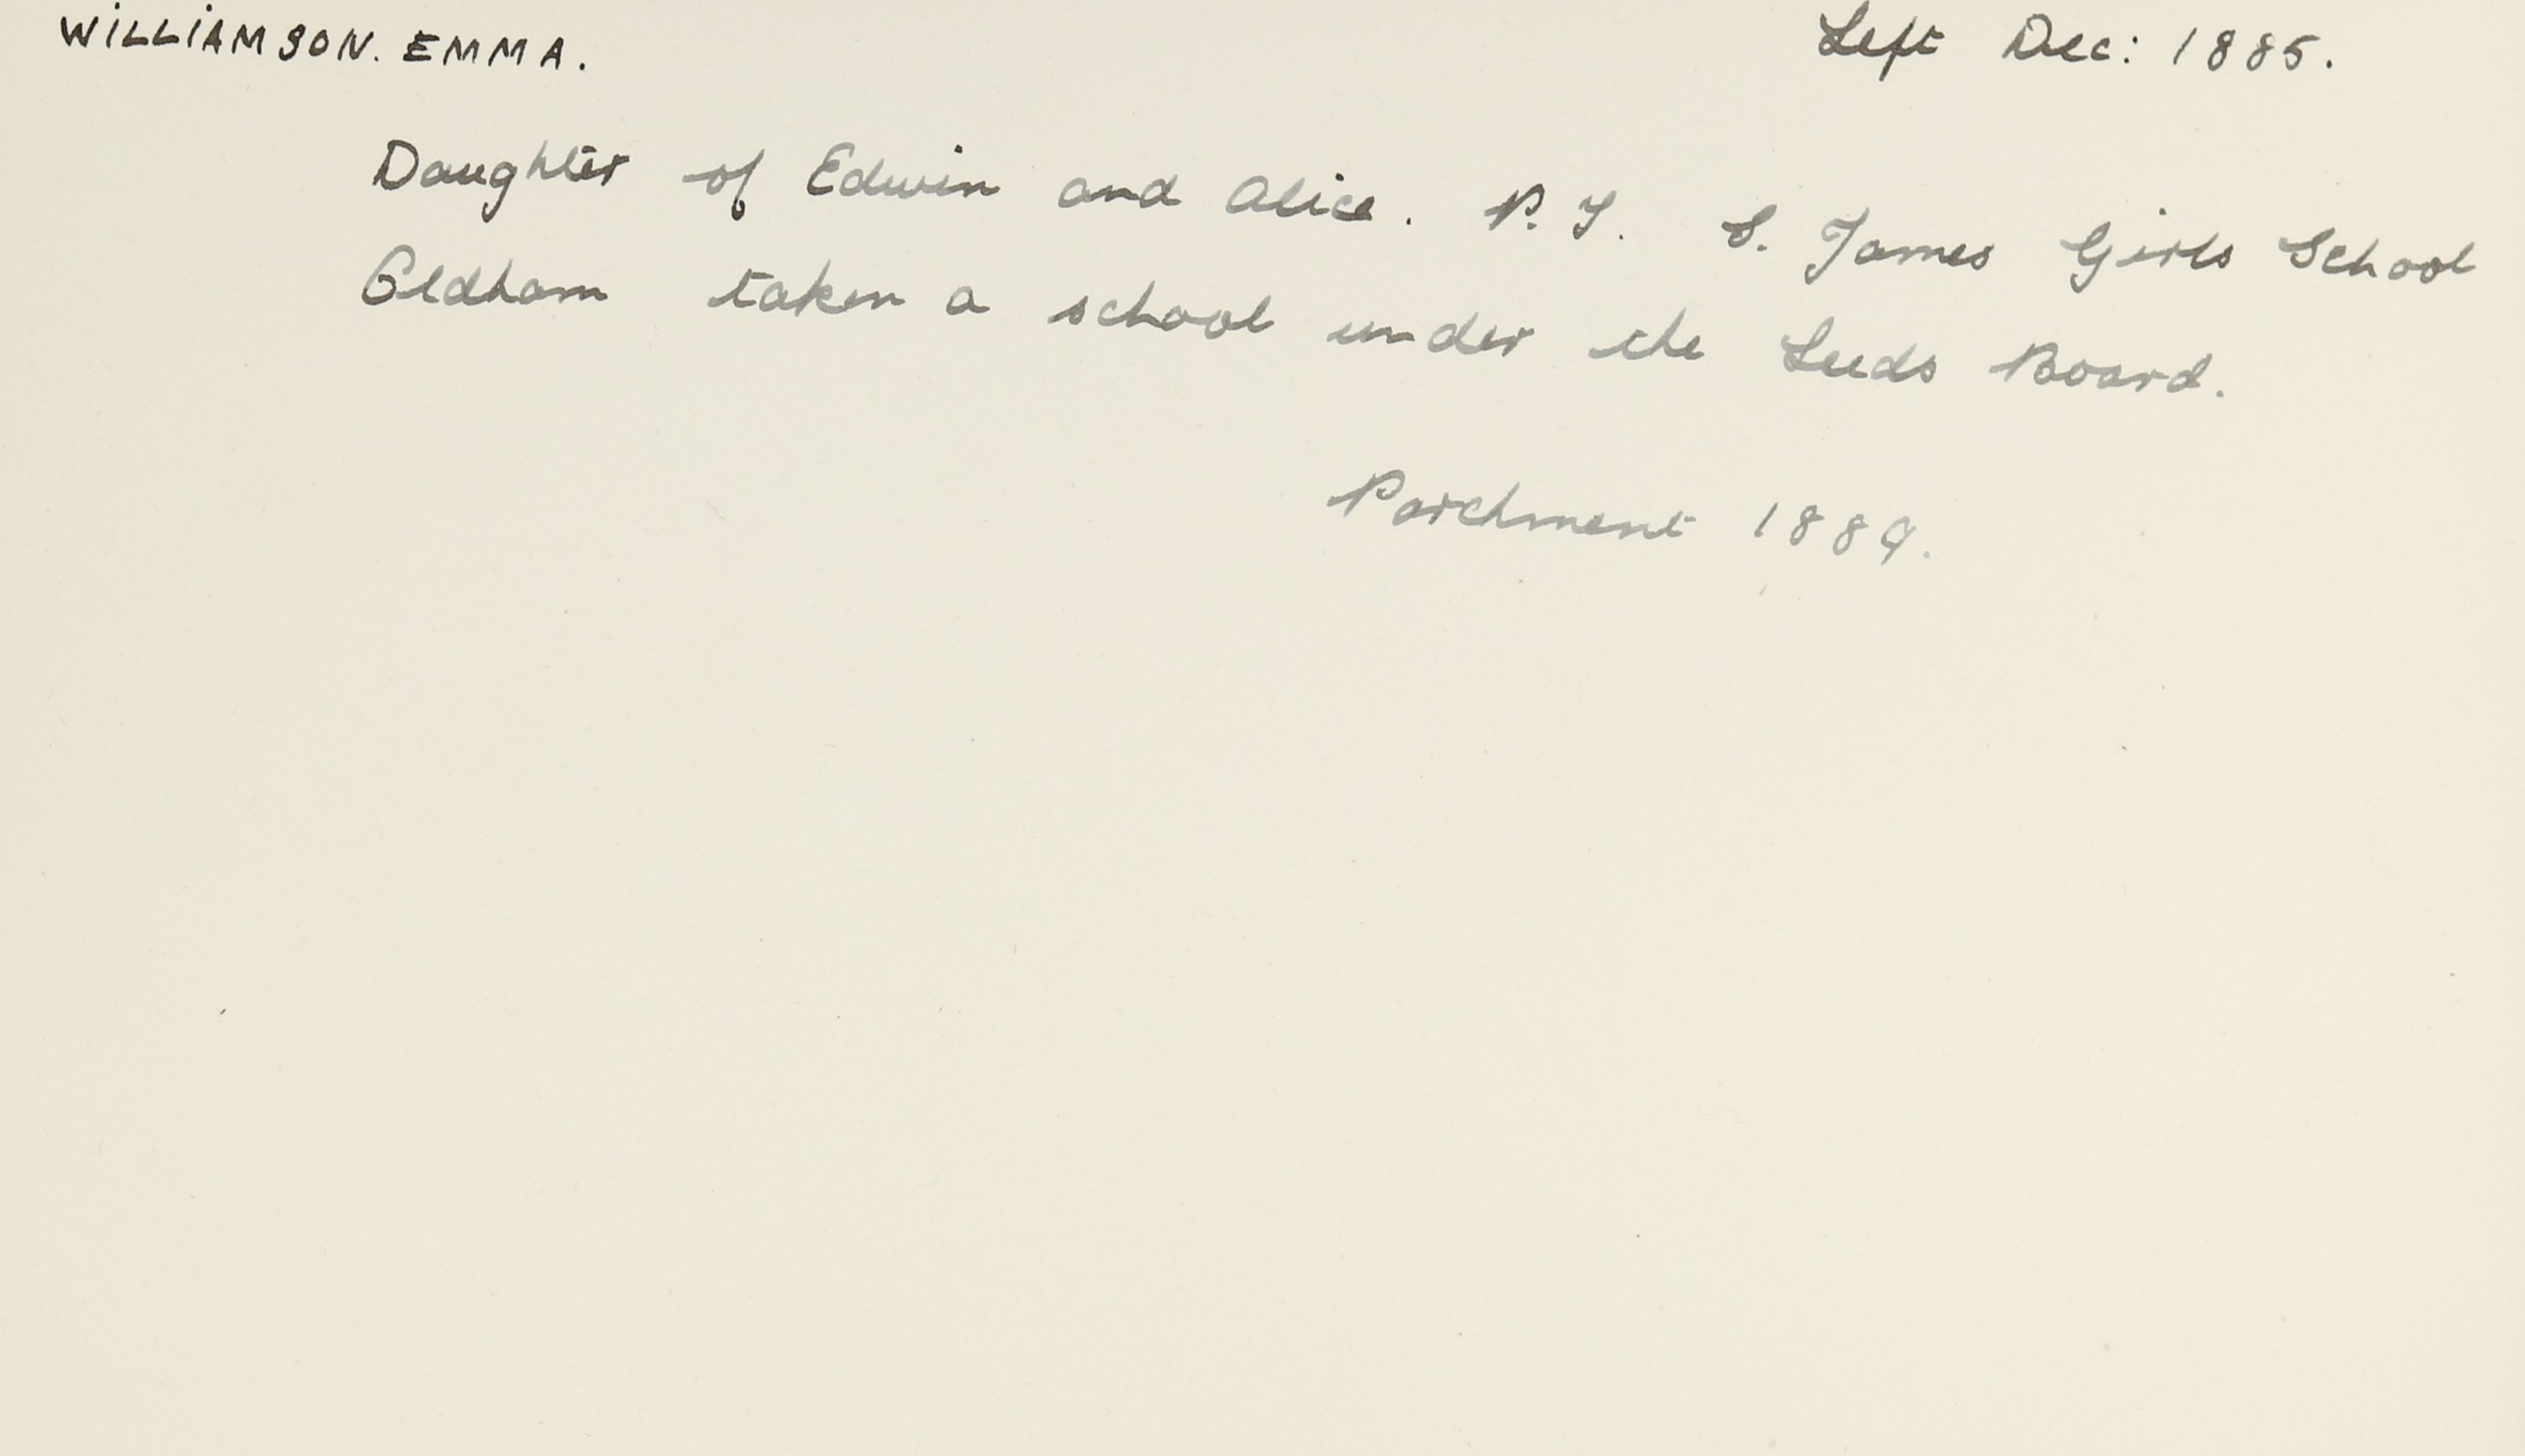 WILLIAMSON. EMMA. Left Dec: 1885.
Daughter of Edwin and Alice. P.T. S. James Girls School
Oldham taken a school under the Leeds Board.
Parchment 1889.